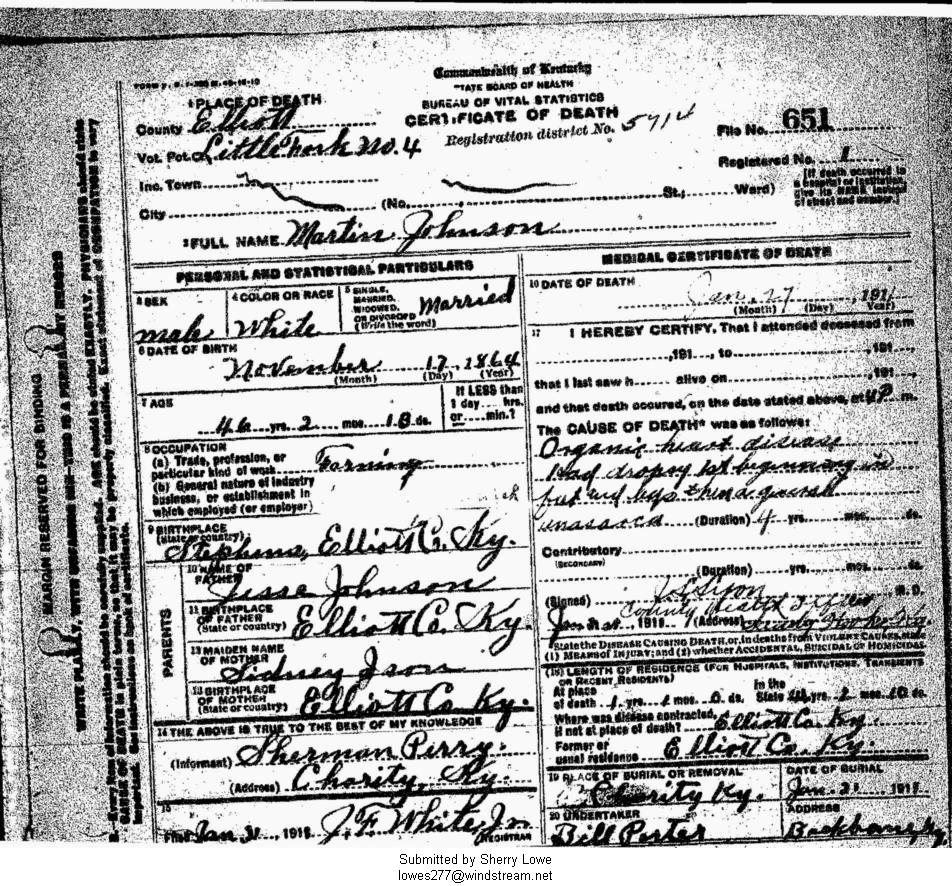 Commonwealth of Kentucky
STATE BOARD OF HEALTH
BUREAU OF VITAL STATISTICS
CERTIFICATE OF DEATH
1 PLACE OF DEATH
County Elliott
Vot. Pct. Little Fork No. 4
Registration district No. 5714
File No. 651
Registered No. 1
[If death occurred in a hospital or institution, give its NAME instead of street and number.]
Inc. Town
City (No. St.; Ward)
2 FULL NAME Martin Johnson
PERSONAL AND STATISTICAL PARTICULARS
3 SEX
male
4 COLOR OR RACE
White
5 SINGLE, MARRIED, WIDOWED, OR DIVORCED (Write the word)
Married
6 DATE OF BIRTH
November 17 1864
(Month) (Day) (Year)
7 AGE
46 yrs. 2 mos. 10 ds.
If LESS than 1 day hrs. or min.?
8 OCCUPATION
(a) Trade, profession, or particular kind of work Farming
(b) General nature of industry business, or establishment in which employed (or employer)
9 BIRTHPLACE
(State or country)
Stephens, Elliott Co. Ky.
PARENTS
10 NAME OF FATHER
Jesse Johnson
11 BIRTHPLACE OF FATHER
(State or country) Elliott Co. Ky.
12 MAIDEN NAME OF MOTHER
Sidney Ison
13 BIRTHPLACE OF MOTHER
(State or country) Elliott Co Ky.
14 THE ABOVE IS TRUE TO THE BEST OF MY KNOWLEDGE
(Informant) Sherman Perry.
(Address) Charity, Ky.
15
Filed Jan 31 191 J. F. White Jr
REGISTRAR
MEDICAL CERTIFICATE OF DEATH
16 DATE OF DEATH
Jan. 27, 1911
(Month) (Day) (Year)
17 I HEREBY CERTIFY, That I attended deceased from
, 191 , to , 191 ,
that I last saw h alive on , 191 ,
and that death occured, on the date stated above, at 4 P m.
The CAUSE OF DEATH* was as follows:
Organic heart disease
Had dropsy 1st beginning in
feet and legs then a general
anasarca (Duration) 4 yrs. mos. ds.
Contributory
(SECONDARY)
(Duration) yrs. mos. ds.
(Signed) M. D.
County Health Officer
191 (Address) Sandy Hook Ky
State the DISEASE CAUSING DEATH, or, in deaths from VIOLENT CAUSES, state
(1) MEANS OF INJURY; and (2) whether ACCIDENTAL, SUICIDAL OR HOMICIDAL
(18) LENGTH OF RESIDENCE (FOR HOSPITALS, INSTITUTIONS, TRANSIENTS
OR RECENT RESIDENTS)
At place of death yrs. mos. ds.
In the State 46 yrs. 2 mos. 10 ds.
Where was disease contracted, if not at place of death? Elliott Co. Ky.
Former or usual residence Elliott Co. Ky.
19 PLACE OF BURIAL OR REMOVAL
Charity Ky.
DATE OF BURIAL
Jan. 191
20 UNDERTAKER
Bill Porter
ADDRESS
MARGIN RESERVED FOR BINDING
Submitted by Sherry Lowe
lowes277@windstream.net